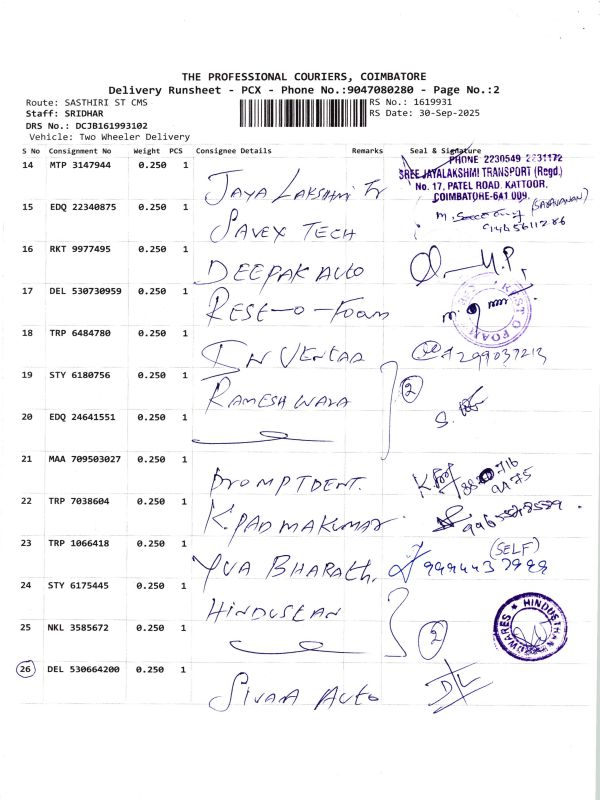 THE PROFESSIONAL COURIERS, COIMBATORE
Delivery Runsheet - PCX - Phone No.:9047080280 - Page No.:2
Route: SASTHIRI ST CMS RS No.: 1619931
Staff: SRIDHAR RS Date: 30-Sep-2025
DRS No.: DCJB161993102
Vehicle: Two Wheeler Delivery
S No Consignment No Weight PCS Consignee Details Remarks Seal & Signature
PHONE 2230549 2231172
14 MTP 3147944 0.250 1 JAYA LAKSHMI Tr SREE JAYALAKSHMI TRANSPORT (Regd.)
No. 17, PATEL ROAD, KATTOOR,
COIMBATORE-641 009.
15 EDQ 22340875 0.250 1 SAVEX TECH (SARAVANAN)
16 RKT 9977495 0.250 1 DEEPAK AUTO
17 DEL 530730959 0.250 1 REST-O-Foam REST O FOAM
18 TRP 6484780 0.250 1 7299037213
19 STY 6180756 0.250 1 RAMESH WARA 2
20 EDQ 24641551 0.250 1
21 MAA 709503027 0.250 1 PROMPTDENT.
22 TRP 7038604 0.250 1 K.PADMAKUMAR
23 TRP 1066418 0.250 1 YUA BHARATH. (SELF)
24 STY 6175445 0.250 1 HINDUSTAN HINDUSTHAN
25 NKL 3585672 0.250 1 2
26 DEL 530664200 0.250 1 SIVAM AUTO D/L